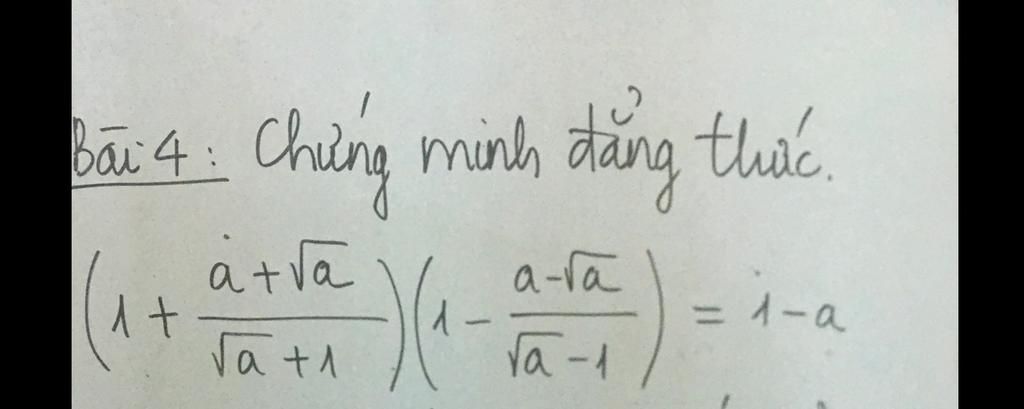 Bài 4: Chứng minh đẳng thức.
(1 + (a + √a)/(√a + 1))(1 - (a - √a)/(√a - 1)) = 1 - a